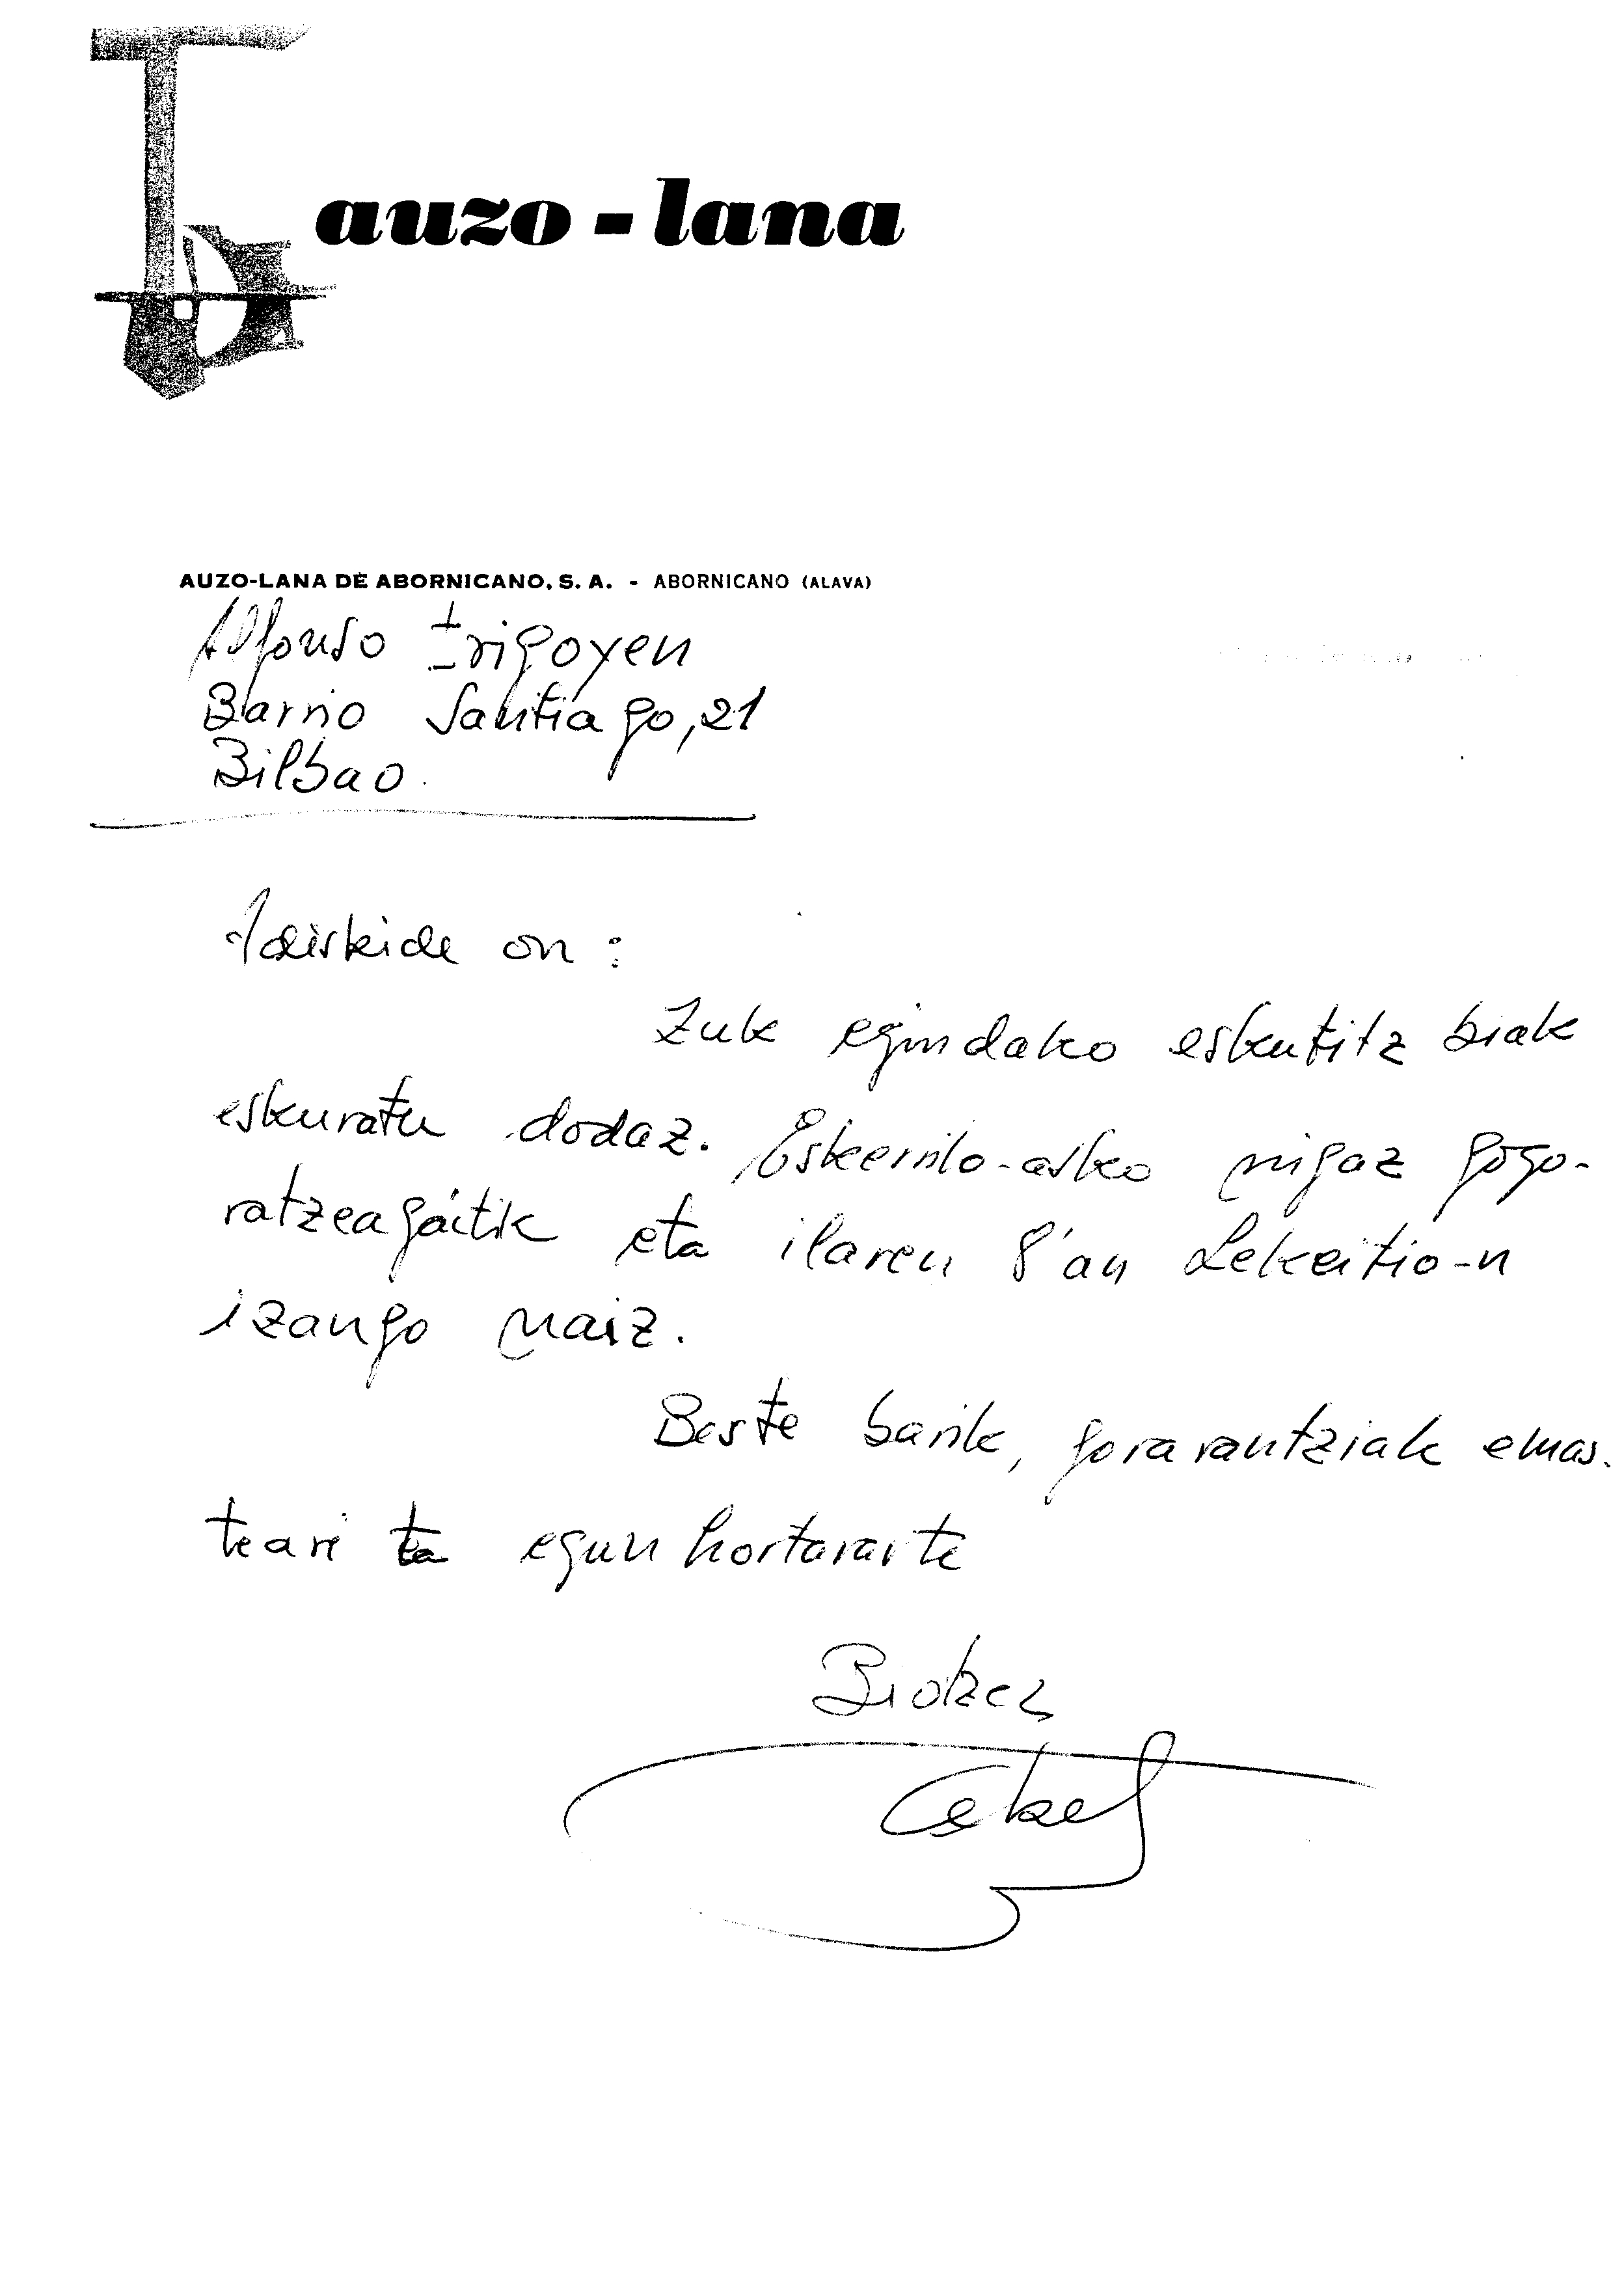 auzo-lana
AUZO-LANA DE ABORNICANO, S. A. - ABORNICANO (ALAVA)
Alfonso Irigoyen
Barrio Santiago, 21
Bilbao.
Adiskide on :
Zuk egindako eskutitz biak
eskuratu dodaz. Eskerrik-asko nigaz gogo-
ratzeagaitik eta ilaren 8'an Lekeitio-n
izango naiz.
Beste barik, gorarantziak emas-
teari ta egun hortararte
Biotzez